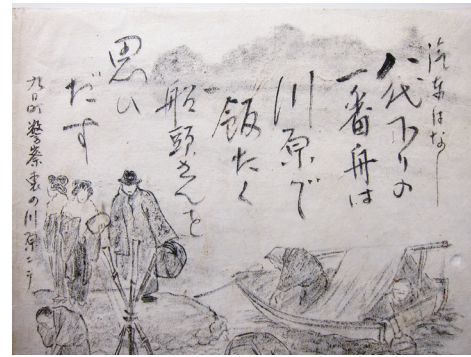 汽車はなし
八代下りの
一番舟は
川原で
飯たく
船頭さんを
思ひ
だす
九日町警察裏の川原ニテ